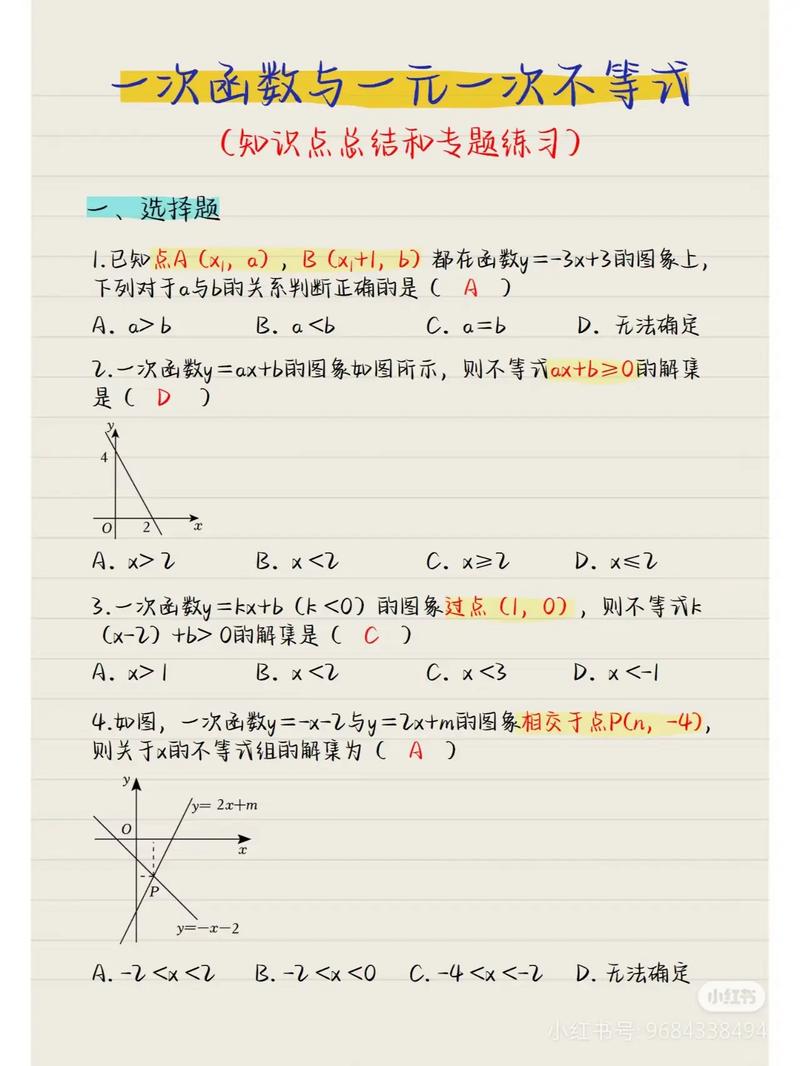 一次函数与一元一次不等式
(知识点总结和专题练习)
一、选择题
1.已知点A(x₁, a), B(x₁+1, b)都在函数y=-3x+3的图象上,
下列对于a与b的关系判断正确的是( A )
A. a>b B. a<b C. a=b D. 无法确定
2.一次函数y=ax+b的图象如图所示, 则不等式ax+b≥0的解集
是( D )
y
4
O 2 x
A. x>2 B. x<2 C. x≥2 D. x≤2
3.一次函数y=kx+b(k<0)的图象过点(1, 0), 则不等式k
(x-2)+b>0的解集是( C )
A. x>1 B. x<2 C. x<3 D. x<-1
4.如图, 一次函数y=-x-2与y=2x+m的图象相交于点P(n, -4),
则关于x的不等式组的解集为( A )
y
y= 2x+m
O
x
P
y=-x-2
A. -2<x<2 B. -2<x<0 C. -4<x<-2 D. 无法确定
小红书
小红书号: 9684338494